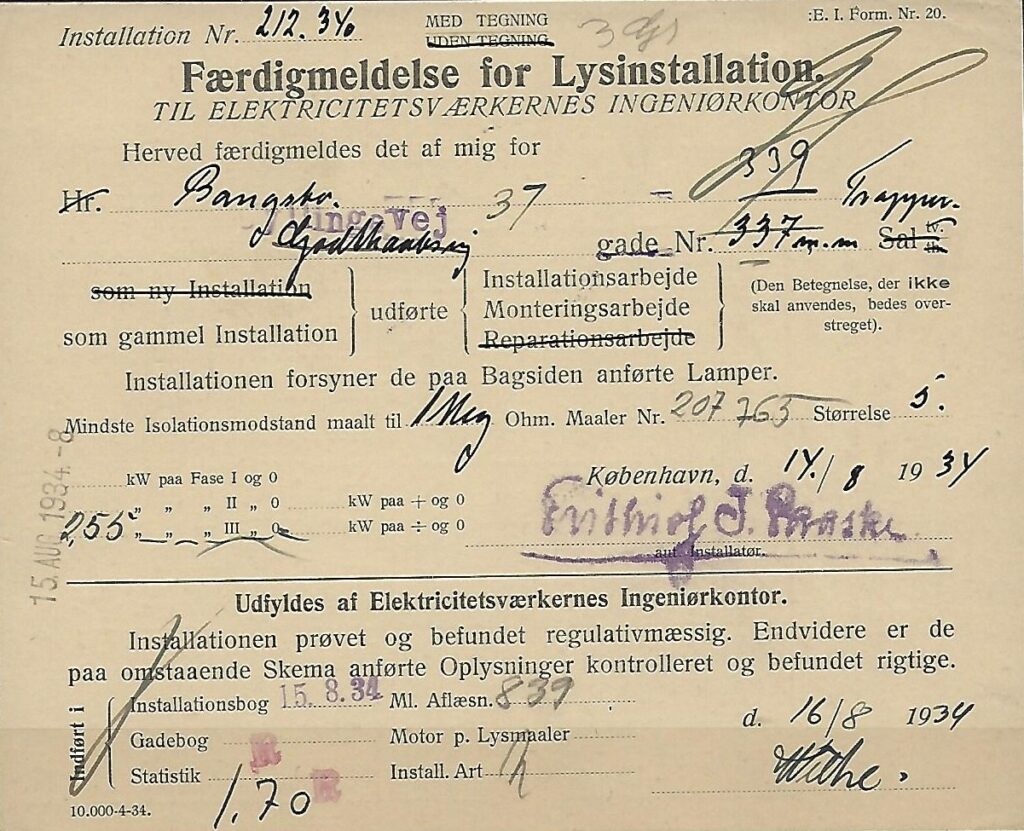 :E. I. Form. Nr. 20.
Installation Nr. 212.34
MED TEGNING
UDEN TEGNING
Færdigmeldelse for Lysinstallation.
TIL ELEKTRICITETSVÆRKERNES INGENIØRKONTOR
Herved færdigmeldes det af mig for
339
Hr. Bangsbo. 37 Trapper.
Godthaabsvej gade Nr. 337 m.m Sal tv. th.
som ny Installation
som gammel Installation
udførte
Installationsarbejde
Monteringsarbejde
Reparationsarbejde
(Den Betegnelse, der ikke
skal anvendes, bedes over-
streget).
Installationen forsyner de paa Bagsiden anførte Lamper.
Mindste Isolationsmodstand maalt til 1 Meg Ohm. Maaler Nr. 207765 Størrelse 5.
15. AUG. 1934.-8
kW paa Fase I og 0
„ „ „ II „ 0 kW paa + og 0
2,55 „ „ „ III „ 0 kW paa ÷ og 0
København, d. 14./8 1934
Frithiof J.
aut. Installatør.
Udfyldes af Elektricitetsværkernes Ingeniørkontor.
Installationen prøvet og befundet regulativmæssig. Endvidere er de
paa omstaaende Skema anførte Oplysninger kontrolleret og befundet rigtige.
Indført i
Installationsbog 15. 8. 34 Ml. Aflæsn. 839
Gadebog R Motor p. Lysmaaler
Statistik R Install. Art
d. 16/8 1934
1.70
10.000-4-34.